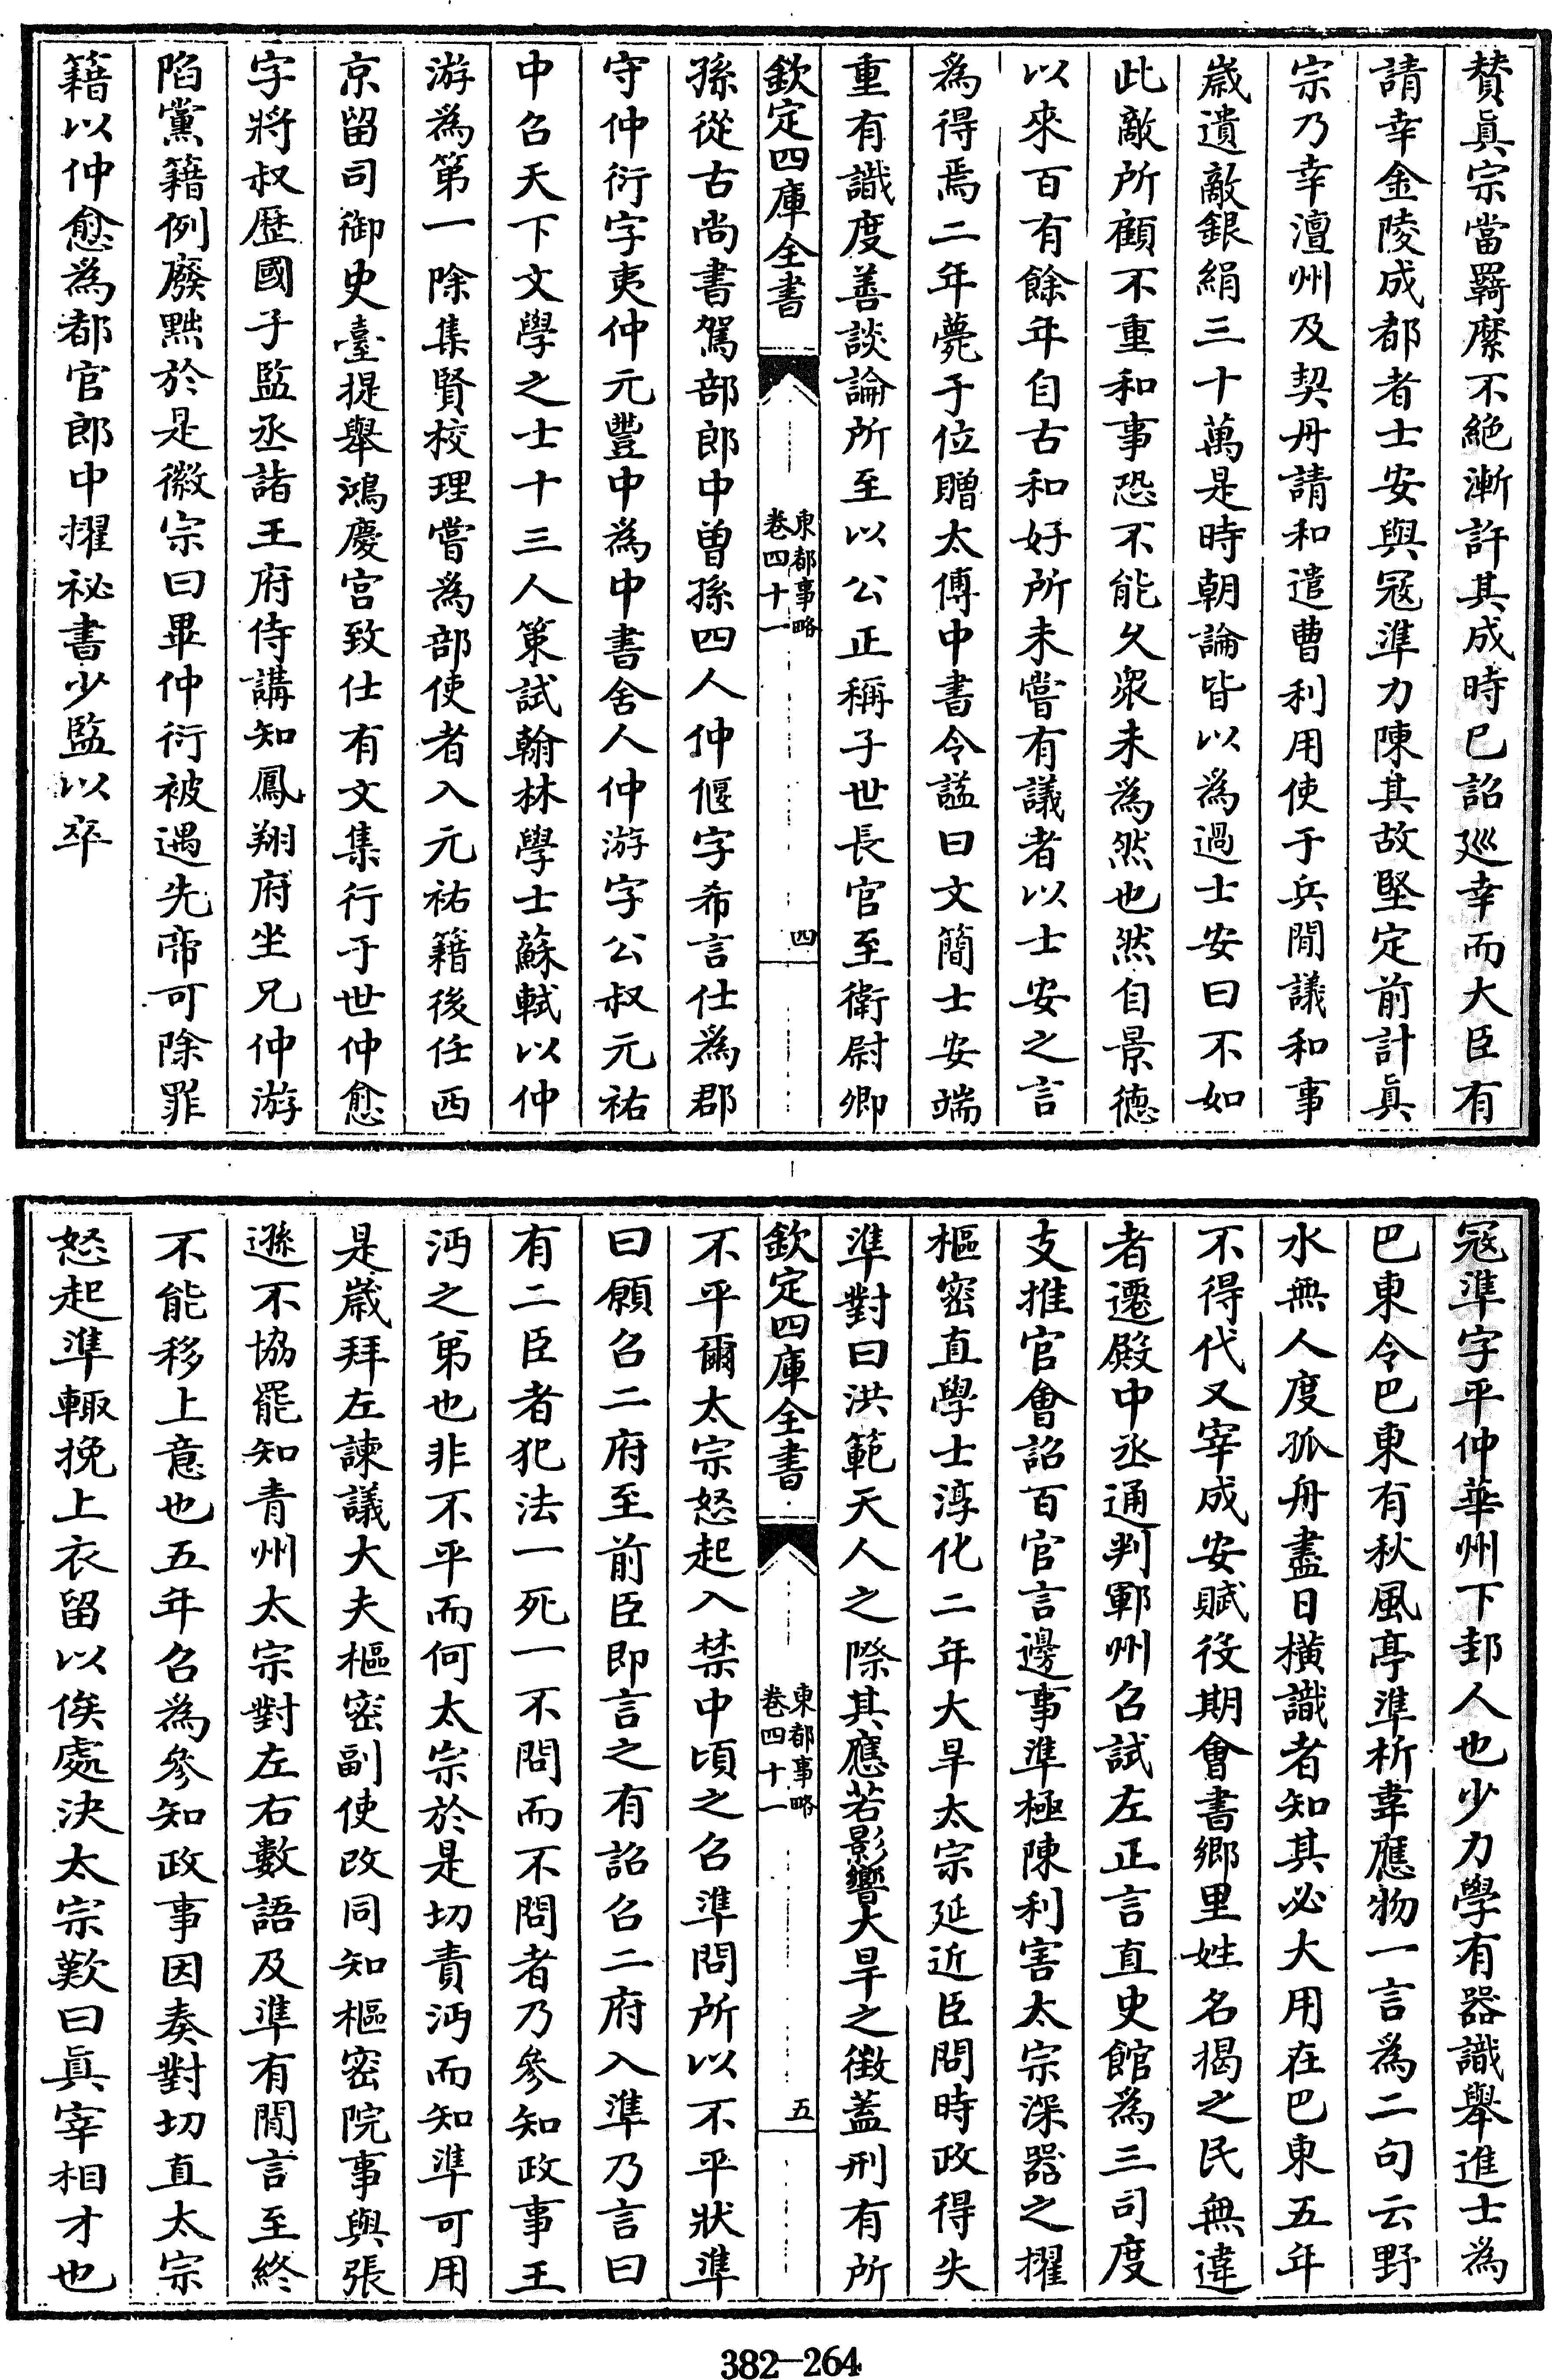 賛眞宗當羇縻不絶漸許其成時已詔廵幸而大臣有
請幸金陵成都者士安與冦準力陳其故堅定前計眞
宗乃幸澶州及契丹請和遣曹利用使于兵閒議和事
歳遺敵銀絹三十萬是時朝論皆以為過士安曰不如
此敵所顧不重和事恐不能久衆未為然也然自景德
以來百有餘年自古和好所未嘗有議者以士安之言
為得焉二年薨于位贈太傅中書令謚曰文簡士安端
重有識度善談論所至以公正稱子世長官至衛尉卿
欽定四庫全書
東都事略
卷四十一
四
孫從古尚書駕部郎中曽孫四人仲偃字希言仕為郡
守仲衍字夷仲元豐中為中書舍人仲游字公叔元祐
中召天下文學之士十三人策試翰林學士蘇軾以仲
游為第一除集賢校理嘗為部使者入元祐籍後任西
京留司御史臺提舉鴻慶宫致仕有文集行于世仲愈
字將叔歴國子監丞諸王府侍講知鳳翔府坐兄仲游
陷黨籍例廢黜於是徽宗曰畢仲衍被遇先帝可除罪
籍以仲愈為都官郎中擢祕書少監以卒
冦準字平仲華州下邽人也少力學有器識舉進士為
巴東令巴東有秋風亭準析韋應物一言為二句云野
水無人度孤舟盡日横識者知其必大用在巴東五年
不得代又宰成安賦役期會書鄉里姓名揭之民無違
者遷殿中丞通判鄆州召試左正言直史館為三司度
支推官會詔百官言邊事準極陳利害太宗深器之擢
樞密直學士淳化二年大旱太宗延近臣問時政得失
準對曰洪範天人之際其應若影響大旱之徴葢刑有所
欽定四庫全書
東都事略
卷四十一
五
不平爾太宗怒起入禁中頃之召準問所以不平狀準
曰願召二府至前臣即言之有詔召二府入準乃言曰
有二臣者犯法一死一不問而不問者乃參知政事王
沔之弟也非不平而何太宗於是切責沔而知準可用
是歳拜左諫議大夫樞密副使改同知樞密院事與張
遜不協罷知青州太宗對左右數語及準有閒言至終
不能移上意也五年召為參知政事因奏對切直太宗
怒起準輙挽上衣留以俟處決太宗歎曰眞宰相才也
382-264